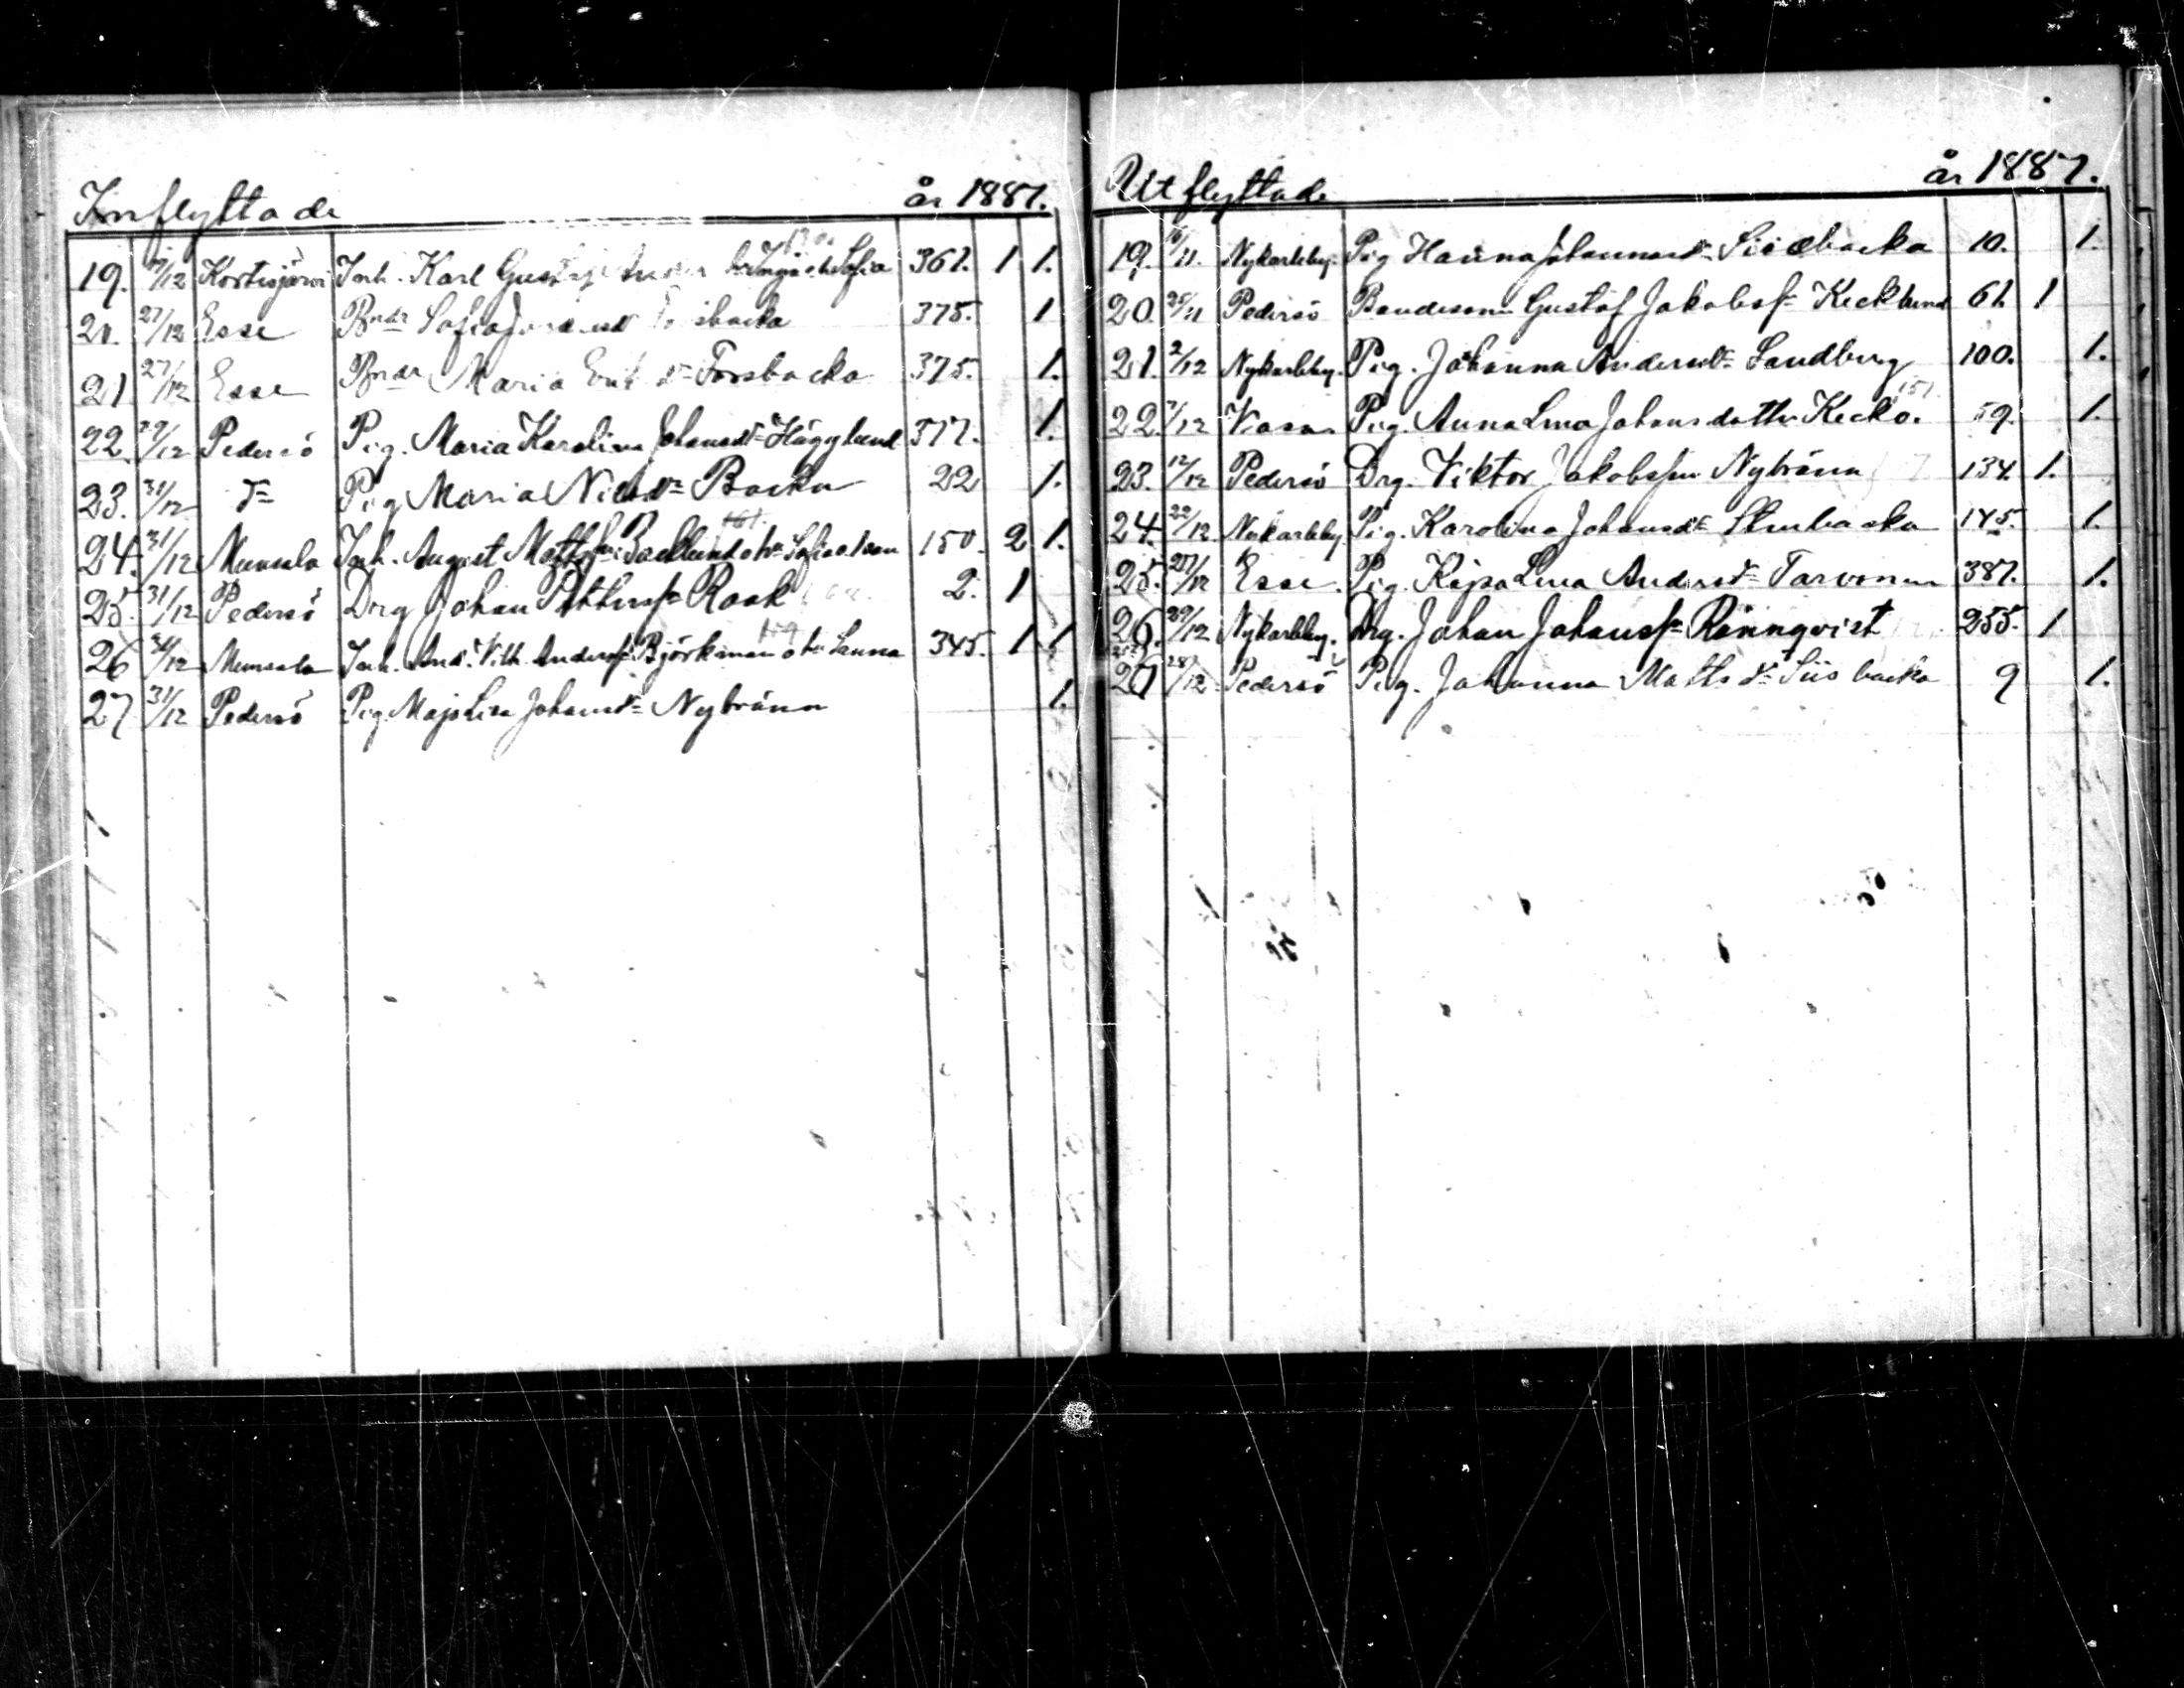 Inflyttade år 1887.
19. 19/12 Kortesjärvi Inh. Karl Gustaf 130. Sofia 361. 1 1.
20. 27/12 Esse Bndr Sofia 375. 1
21 27/12 Esse Bndr Maria Erik dr Forsbacka 375. 1.
22. 29/12 Pedersö Pig. Maria Karolina Johansdr Hägglund 377. 1.
23. 31/12 dr Pig Maria Nilsdr Backa 22 1.
24. 31/12 Munsala Inh. August Mattsn Backlund o hu Sofia o 161. 150. 2 1.
25. 31/12 Pedersö Drg Johan Pettersn Rank 2. 1
26 31/12 Munsala Inh. And. Vilh. Andersn Björkman o hu Sanna 159 345. 1 1
27 31/12 Pedersö Pig. Maja Lisa Johansdr Nybränn 1.
Utflyttade år 1887.
19. 16/11. Nykarleby. Pig Hanna Johannesdr Siidbacka 10. 1.
20. 25/11 Pedersö Bondeson Gustaf Jakobsn Kecklund 61. 1
21. 2/12 Nykarleby. Pig. Johanna Andersdr Sandberg 100. 1.
22. 7/12 Vasa Pig. Anna Lena Johansdotter Kecko. 157. 59. 1.
23. 12/12 Pedersö Drg. Viktor Jakobsson Nybränn 134. 1.
24. 22/12 Nykarleby Pig. Karolina Johansdr 145. 1.
25. 27/12 Esse. Pig. Kajsa Lena Andersdr Tarvonen 387. 1.
26. 29/12 Nykarleby. Drg. Johan Johansn Rönnqvist 255. 1
27 28/12 Pedersö Pig. Johanna Mattsdr Siisbacka 9 1.